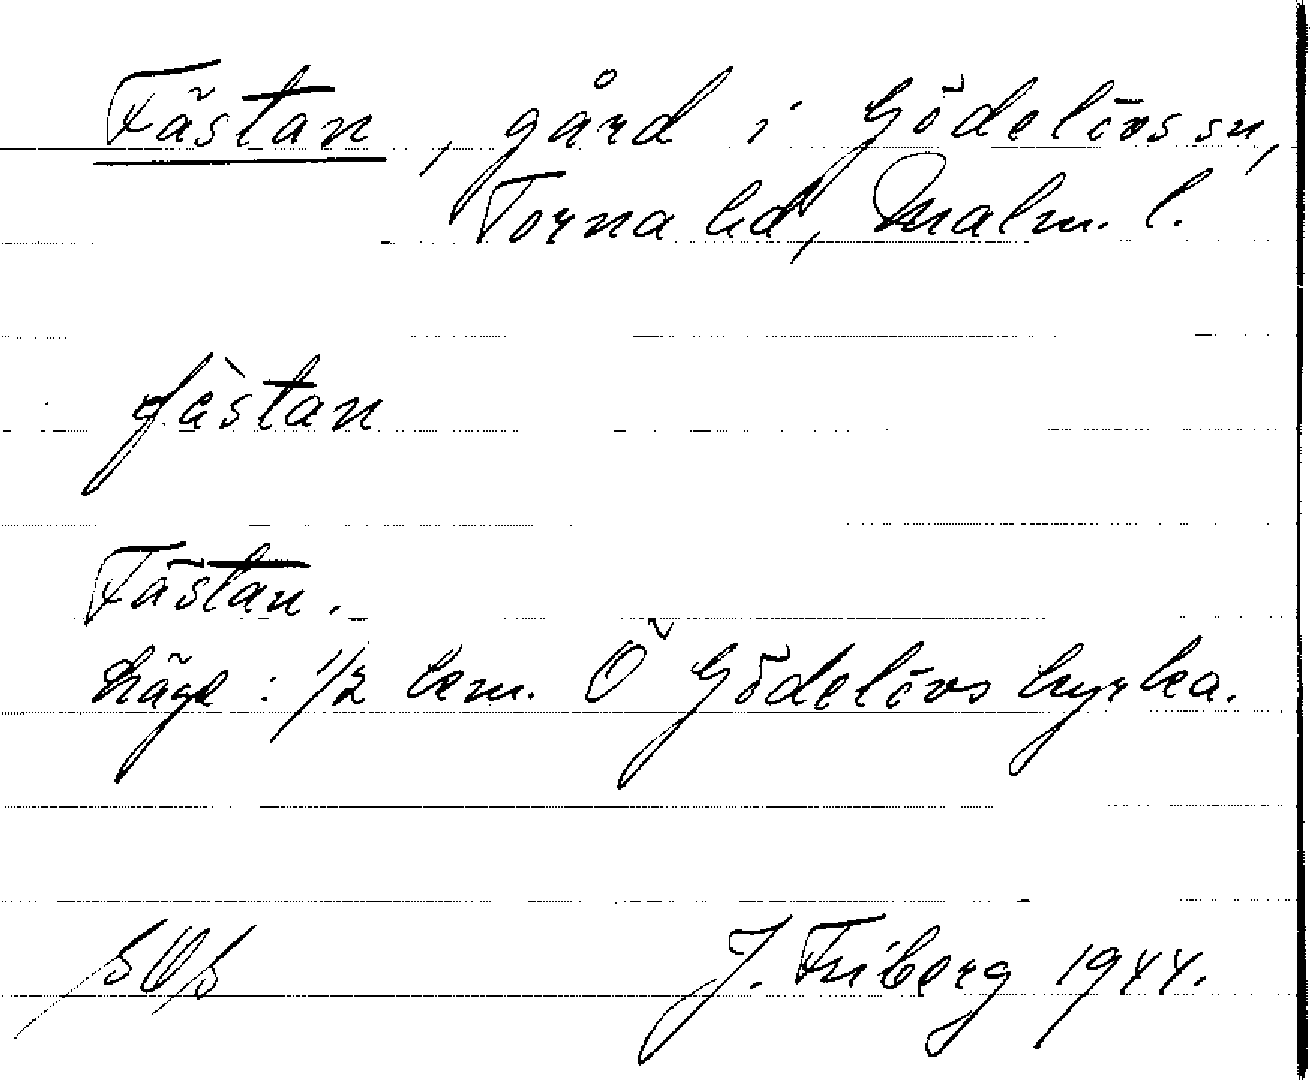 Fästan, gård i Gödelövs sn,
Torna hd, Malm. l.
fàstan
Fästan.
Läge: 1/2 km. Ö Gödelövs kyrka.
J. Friberg 1944.